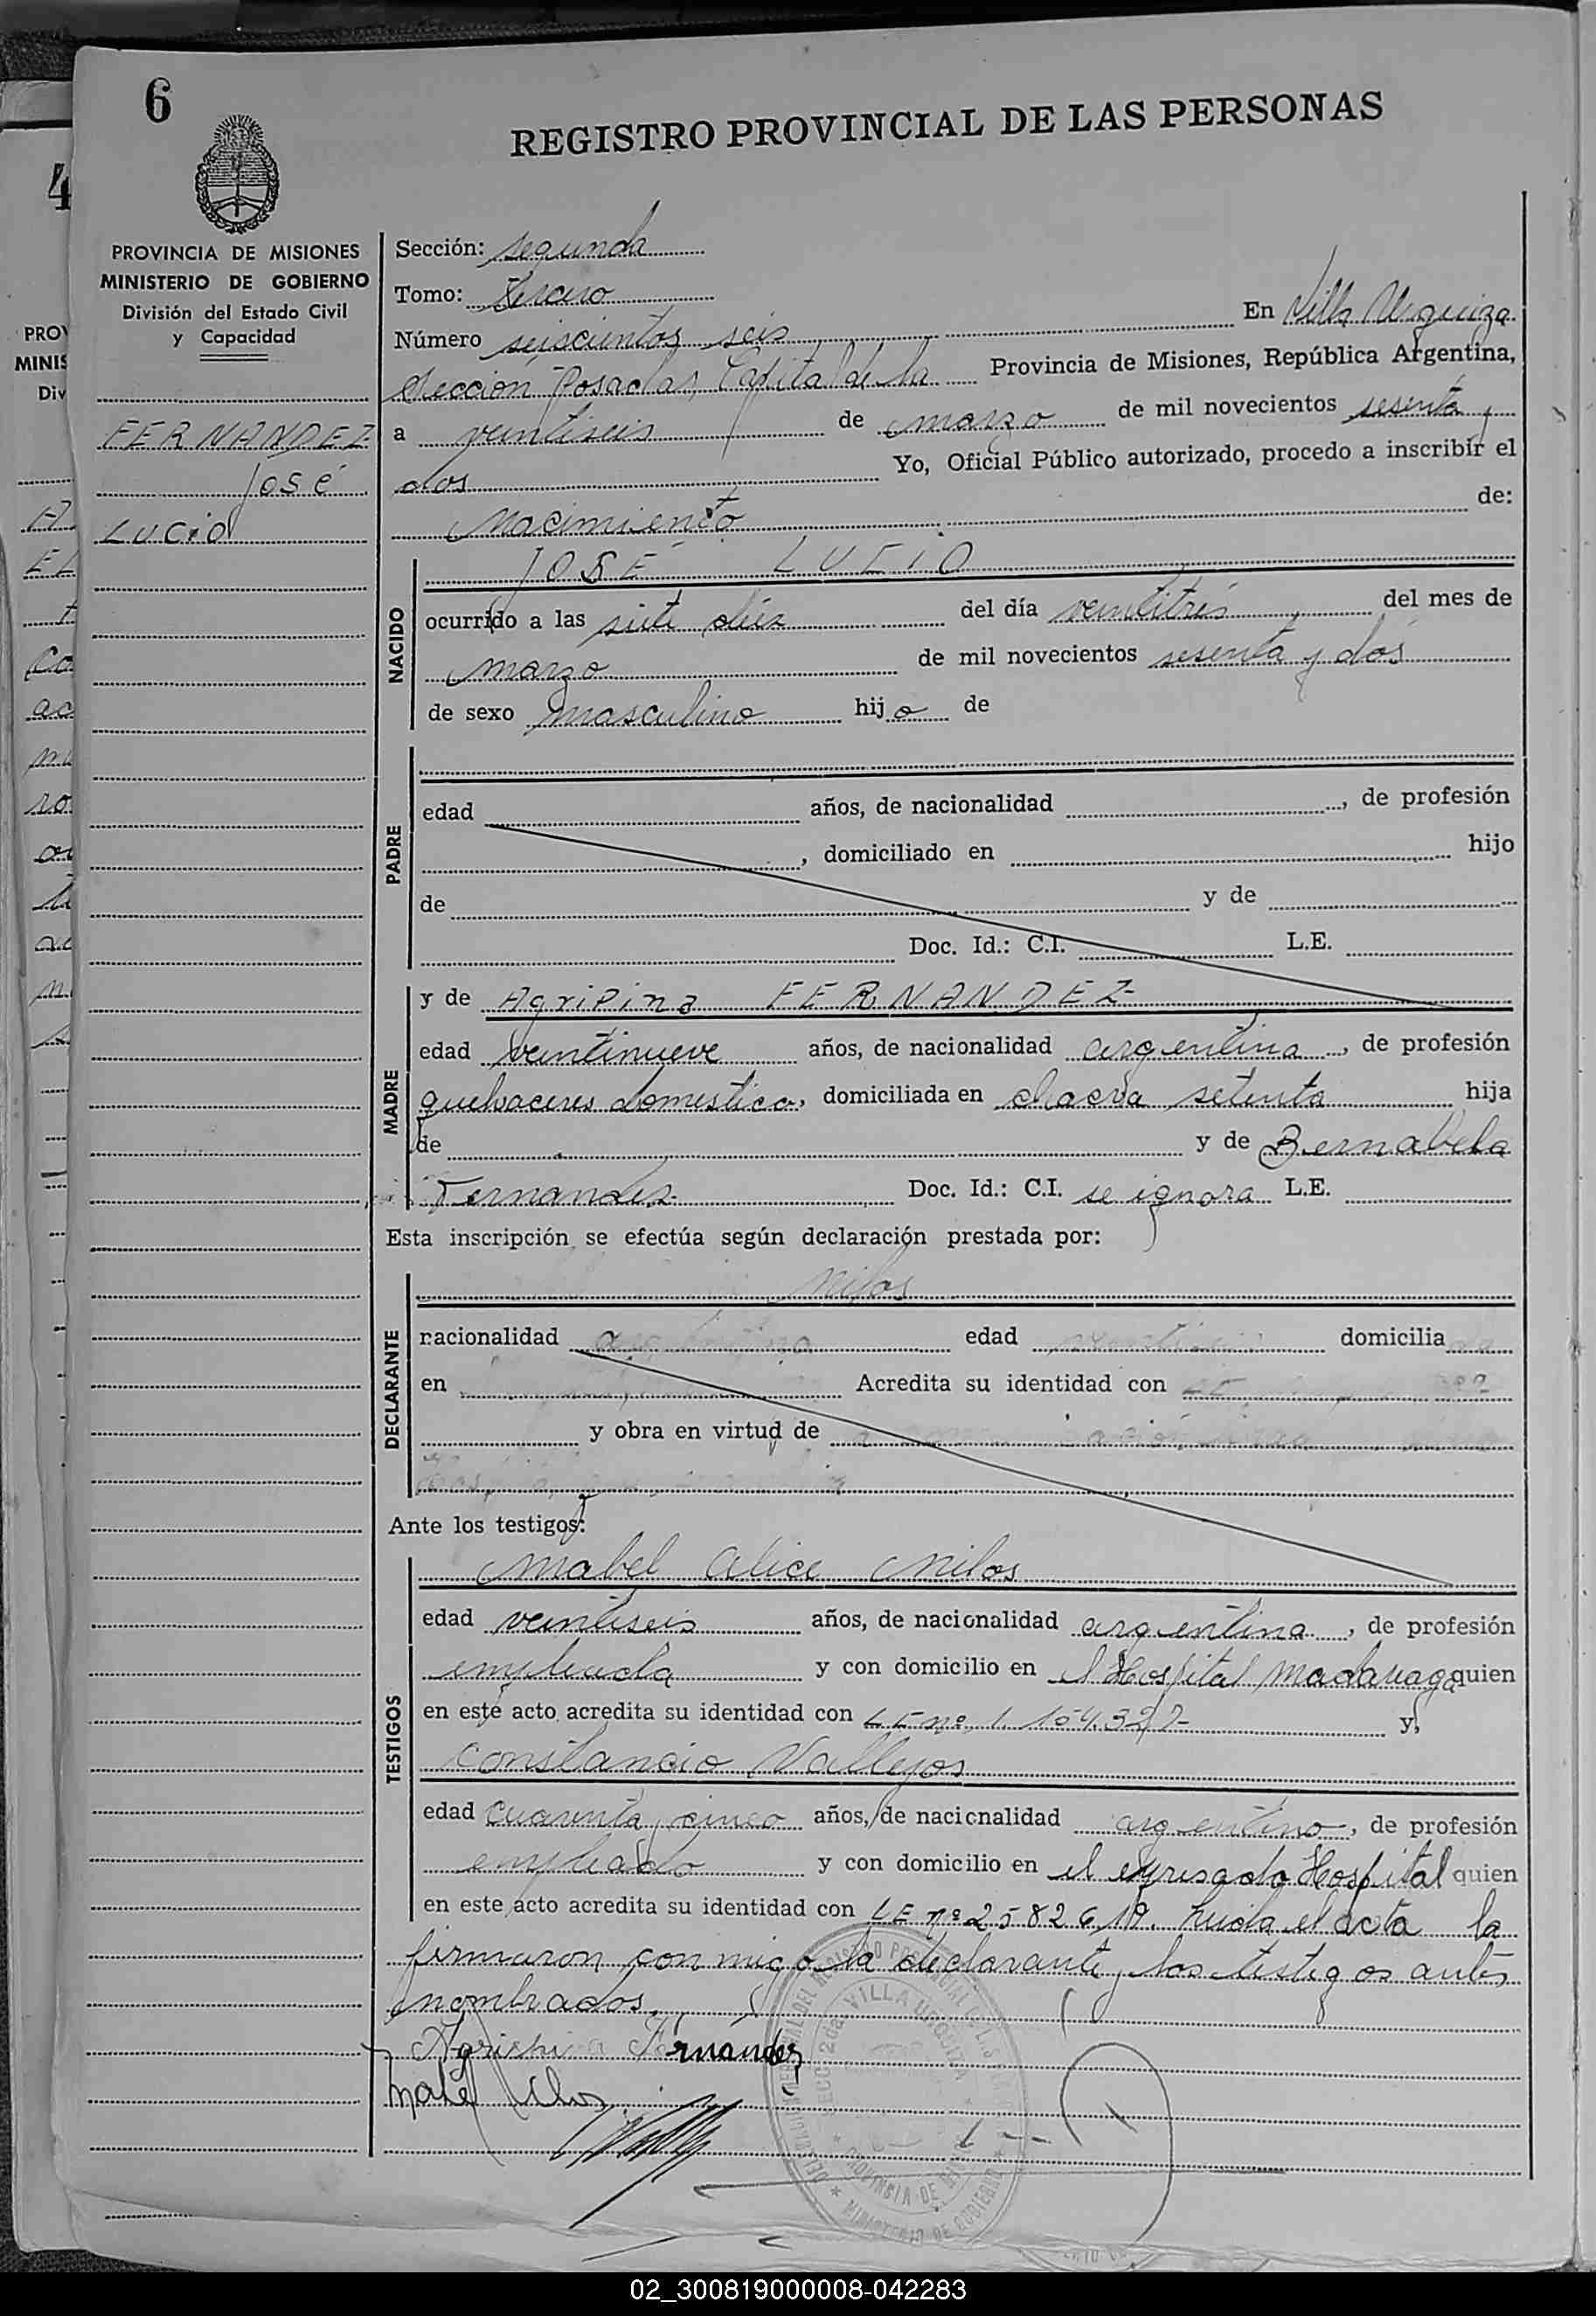 6
REGISTRO PROVINCIAL DE LAS PERSONAS
4
PROVINCIA DE MISIONES
MINISTERIO DE GOBIERNO
División del Estado Civil
y Capacidad
FERNANDEZ
José
LUCIO
Sección: segunda
Tomo: Tercero
Número seiscientos seis En Villa Urquiza
Sección Posadas, Capital de la Provincia de Misiones, República Argentina,
a veintiseis de marzo de mil novecientos sesenta y
dos Yo, Oficial Público autorizado, procedo a inscribir el
Nacimiento de:
JOSÉ LUCIO
NACIDO
ocurrido a las siete diez del día veintitrés del mes de
marzo de mil novecientos sesenta y dos
de sexo masculino hijo de
PADRE
edad años, de nacionalidad , de profesión
, domiciliado en hijo
de y de
Doc. Id.: C.I. L.E.
MADRE
y de Agripina FERNANDEZ
edad veintinueve años, de nacionalidad argentina, de profesión
quehaceres domestico, domiciliada en chacra setenta hija
de y de Bernabela
Fernandez Doc. Id.: C.I. se ignora L.E.
Esta inscripción se efectúa según declaración prestada por:
DECLARANTE
Milos
nacionalidad edad domicilia
en Acredita su identidad con
y obra en virtud de
Ante los testigos:
TESTIGOS
Mabel Alice Milos
edad veintiseis años, de nacionalidad argentina, de profesión
empleada y con domicilio en el Hospital Madariaga quien
en este acto acredita su identidad con LE nº 1.104.327 y,
Constancio Vallejos
edad cuarenta y cinco años, de nacionalidad argentino, de profesión
empleado y con domicilio en el expresado Hospital quien
en este acto acredita su identidad con LE nº 2582619. Leída el acta la
firmaron conmigo la declarante y los testigos antes
nombrados.
Agripina Fernández
VILLA URQUIZA
PROVINCIA DE
MINISTERIO DE GOBIERNO
02_300819000008-042283